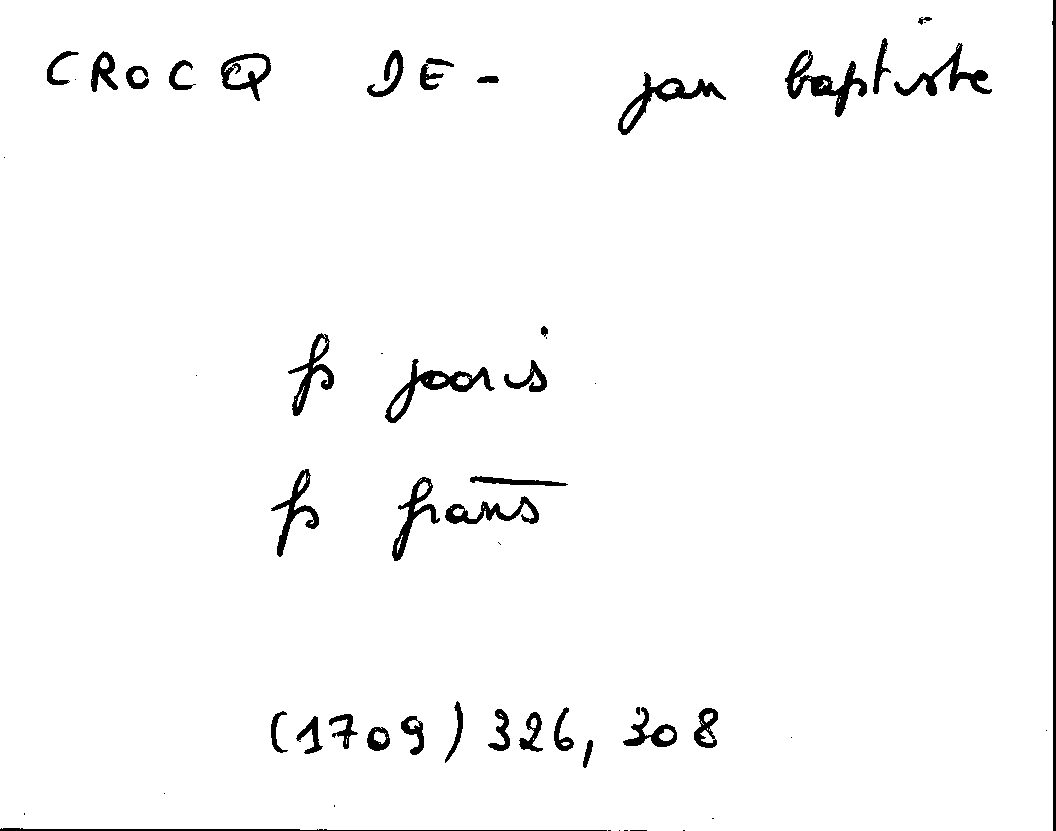 CROCQ DE- jan baptiste
fs jooris
fs frans
(1709) 326, 308